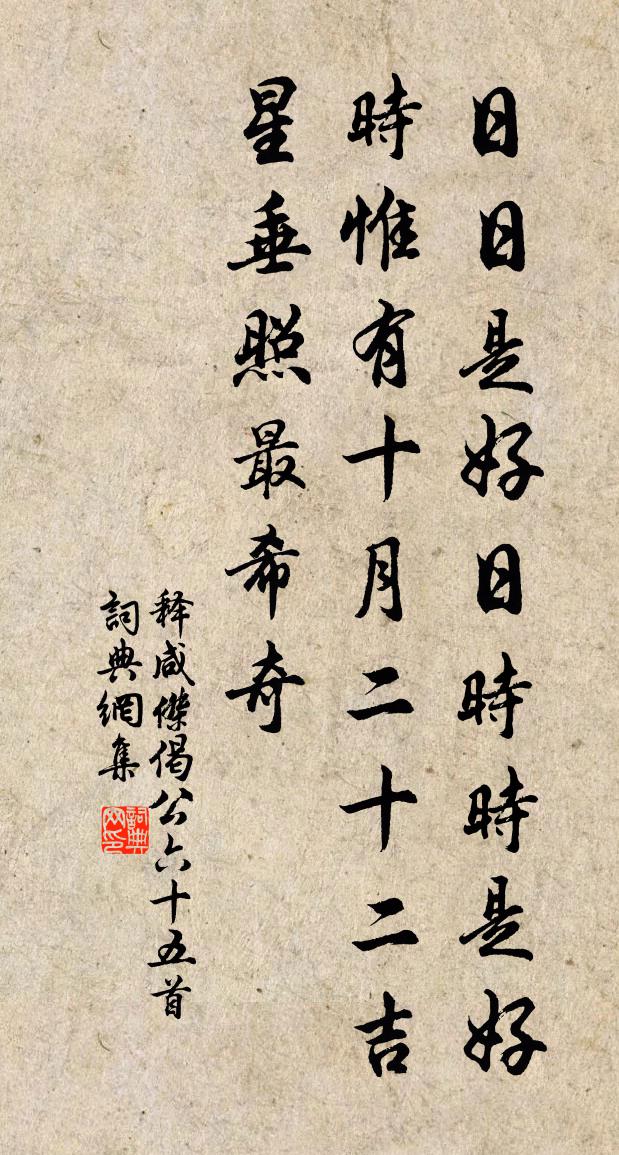 日日是好日時時是好
時惟有十月二十二吉
星垂照最希奇
释咸傑偈公六十五首
詞典網集
詞典网印